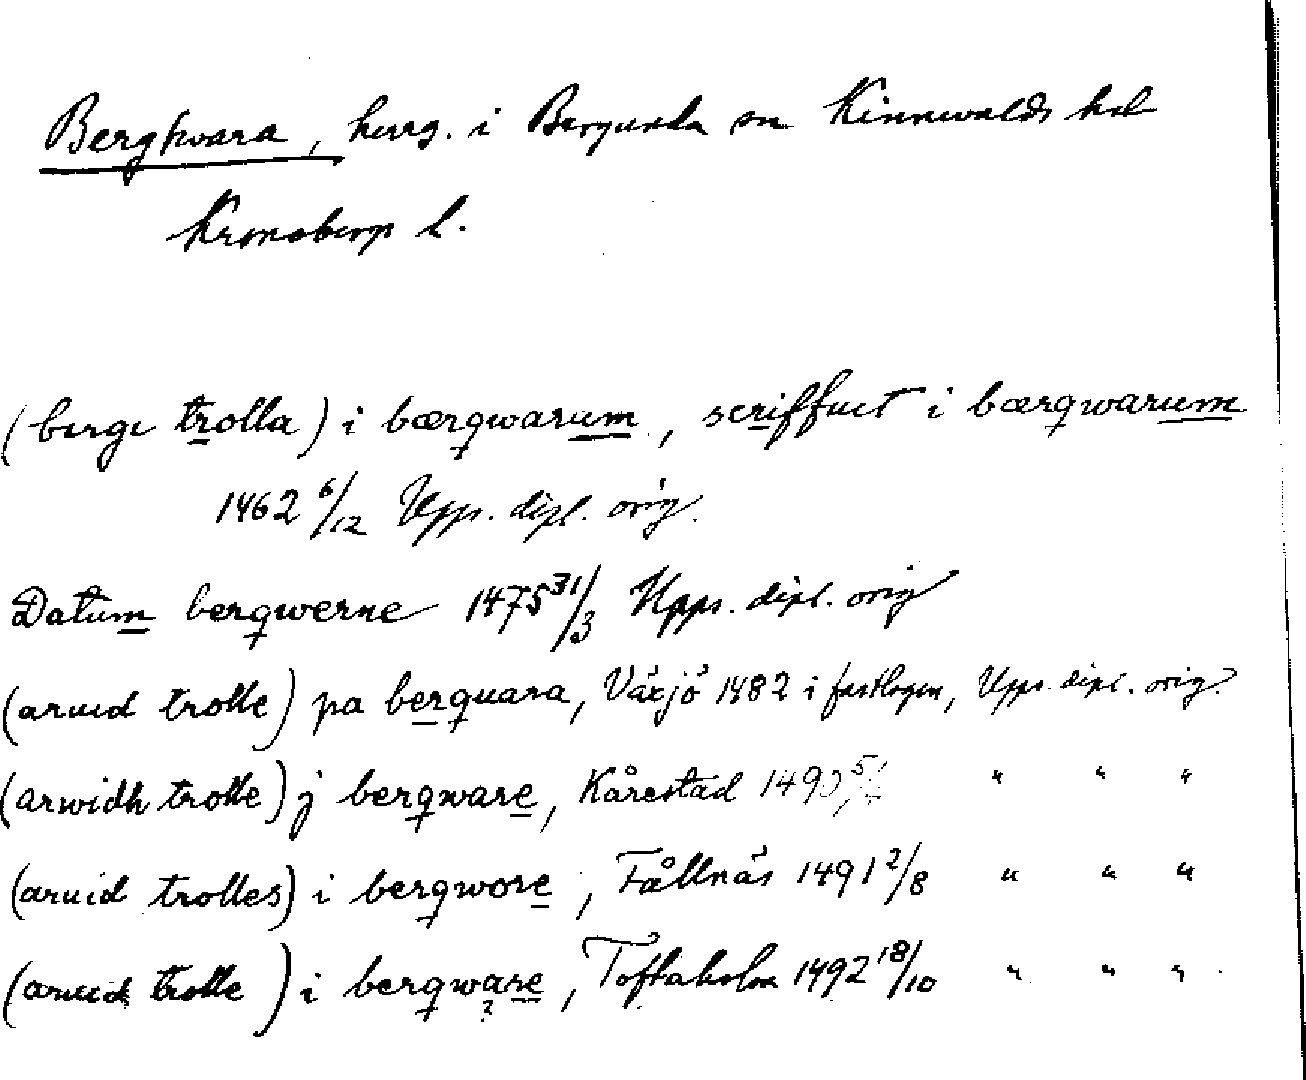 Bergkvara, herrg. i Bergunda sn Kinnevalds hd
Kronobergs l.
(birge trolla) i bærqwarum, scriffuet i bærqwarum
1462 6/12 Upps. dipl. orig.
Datum berqwerne 1475 31/3 Upps. dipl. orig
(aruid trolle) pa berquara, Växjö 1482 i fastlagen, Upps. dipl. orig.
(arwidh trolle) j berqware, Kårestad 1490 " " "
(aruid trolles) i berqwore, Fållnäs 1491 2/8 " " "
(aruid trolle) i berqware, Toftaholm 1492 18/10 " " "
?